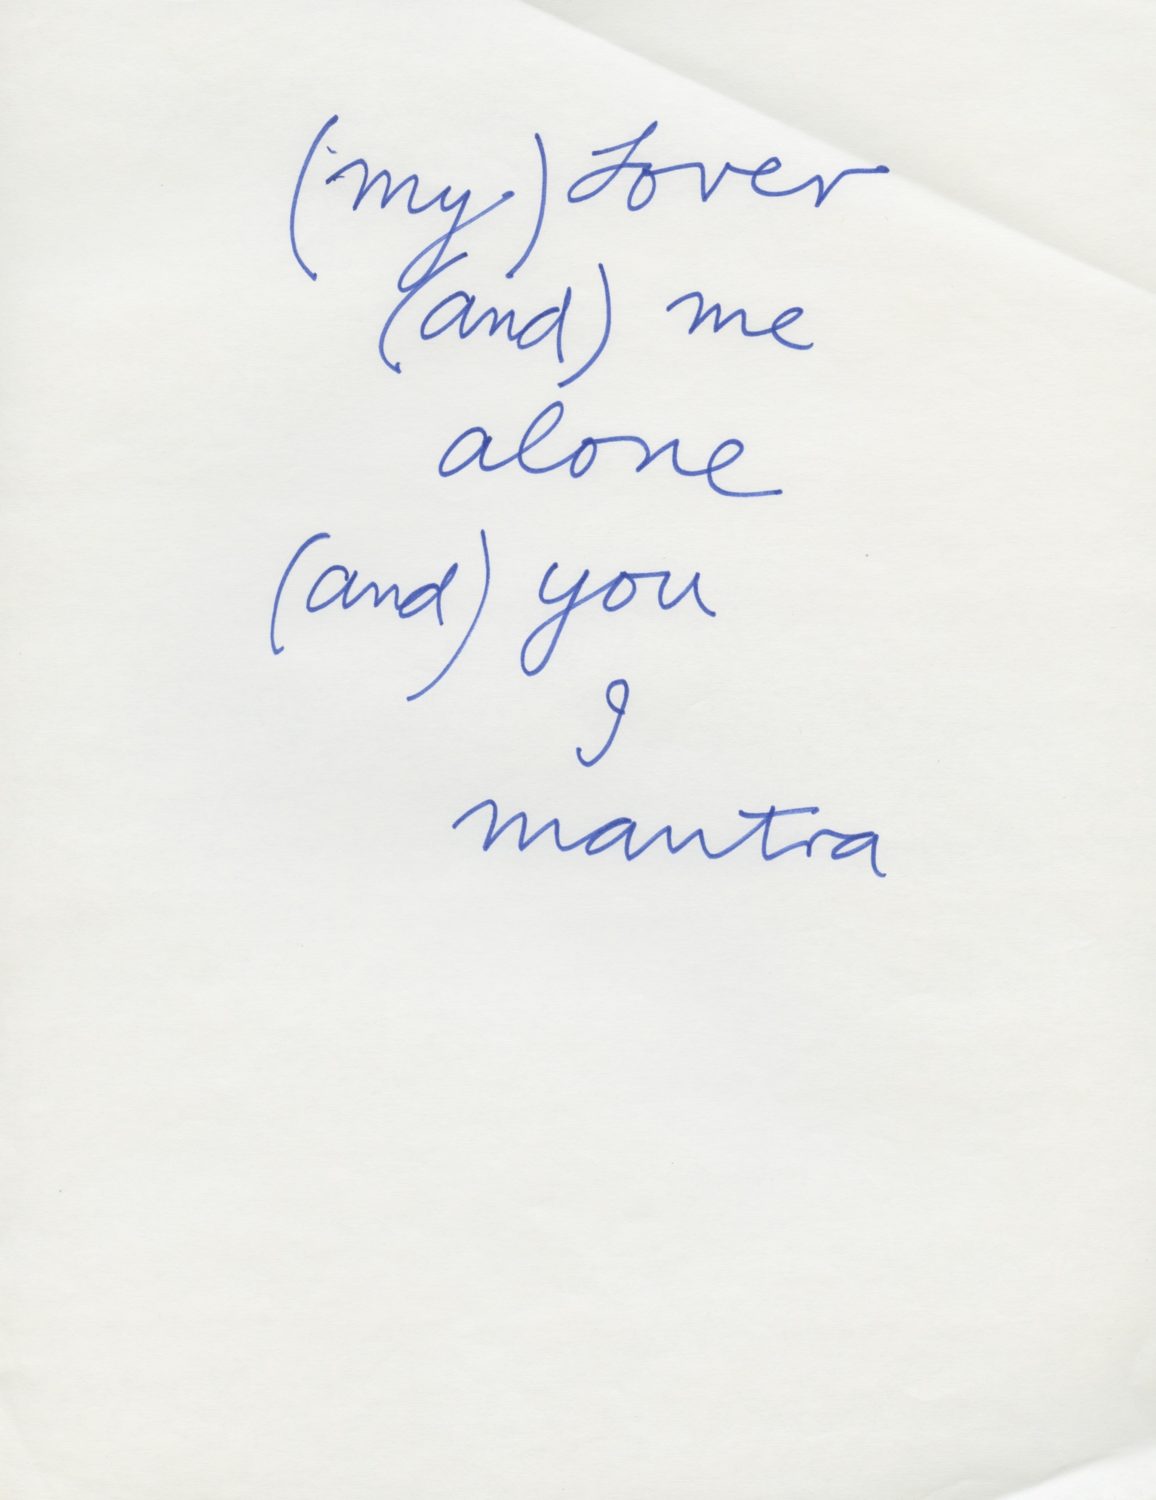 (my) Lover
(and) me
alone
(and) you
I
mantra